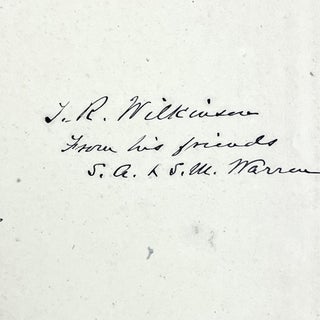 T. R. Wilkinson
From his friends
S. A. & S. M. Warren